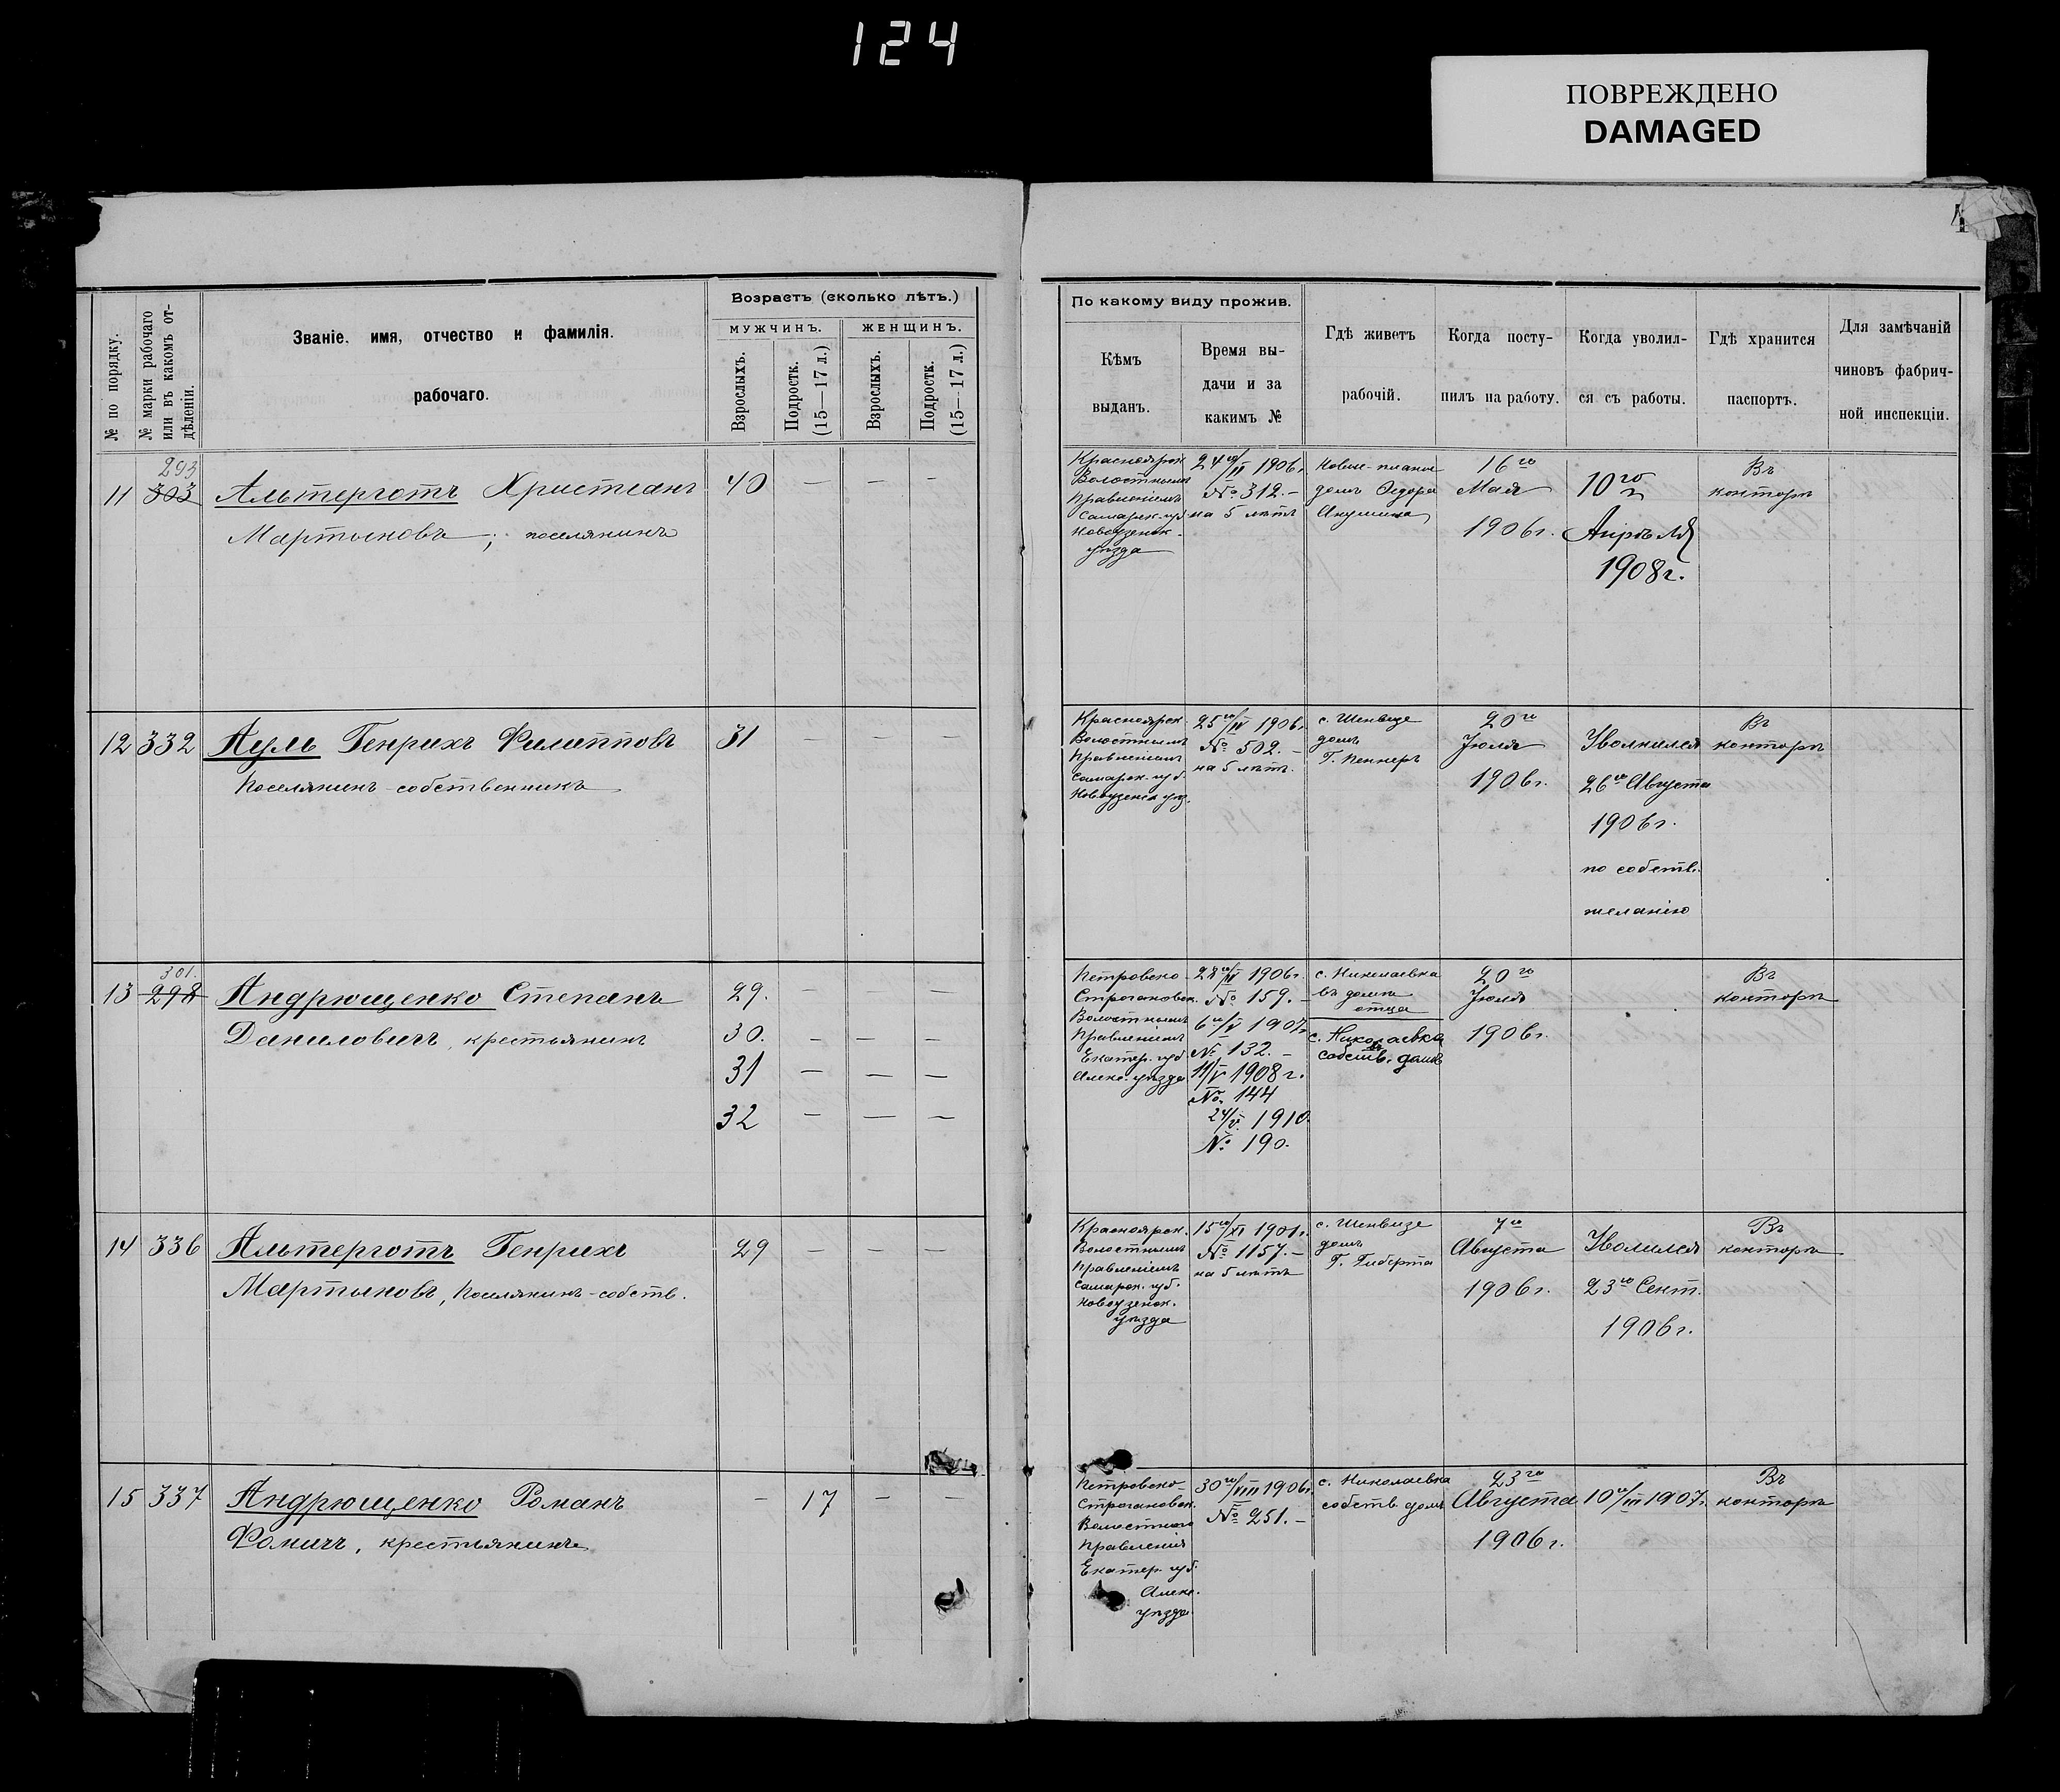 124
ПОВРЕЖДЕНО
DAMAGED
№ по порядку.
№ марки рабочаго
или въ какомъ от-
дѣленіи.
Званіе, имя, отчество и фамилія.
рабочаго.
Возрастъ (сколько лѣтъ.)
МУЖЧИНЪ.
ЖЕНЩИНЪ.
Взрослыхъ.
Подростк.
(15—17 л.)
Взрослыхъ.
Подростк.
(15—17 л.)
По какому виду прожив.
Кѣмъ
выданъ.
Время вы-
дачи и за
какимъ №
Гдѣ живетъ
рабочій.
Когда посту-
пилъ на работу.
Когда уволил-
ся съ работы.
Гдѣ хранится
паспортъ.
Для замѣчаній
чиновъ фабрич-
ной инспекціи.
11
293
303
Альтерготъ Христеанъ
Мартыновъ; поселянинъ
40 — — —
Красноярск.
Волостнымъ
Правленіемъ
Самарск. губ.
Новоузенск.
уѣзда
1906г.
№ 312.—
на 5 лѣтъ
домъ Ѳедора
16го
Мая
1906г.
10го
Апрѣля
1908г.
Въ
конторѣ
12
332
Ауль Генрихъ Филипповъ
Поселянинъ-собственникъ
31 — — —
Красноярск.
Волостнымъ
Правленіемъ
Самарск. губ.
Новоузенск уѣз.
25го/IV 1906г.
№ 502.—
на 5 лѣтъ.
с. Шенвизе
домъ
Г. Пеннеръ
20го
Іюля
1906г.
Уволился
26го Августа
1906г.
по собств.
желанію
Въ
конторѣ
13
301.
298
Андрющенко Степанъ
Даниловичъ, крестьянинъ
29. — — —
30. — — —
31 — — —
32 — — —
Петровско-
Строгановск.
Волостнымъ
Правленіемъ
Екатер. губ.
Алекс. уѣзда
1906г.
№ 159.—
6го/V 1907г.
№ 132.—
11/V 1908г.
№ 144
24/V. 1910.
№ 190.
с. Николаевка
въ домѣ
отца
с. Николаевка
собств. домъ
20го
Іюля
1906г.
Въ
конторѣ
14
336
Альтерготъ Генрихъ
Мартыновъ, Поселянинъ-собств.
29 — — —
Красноярск.
Волостнымъ
Правленіемъ
Самарск. губ.
Новоузенск.
уѣзда
15го/XI 1901г.
№ 1157.—
на 5 лѣтъ
с. Шенвизе
домъ
Г. Гиберта
7го
Августа
1906г.
Уволился
23го Сент.
1906г.
Въ
конторѣ
15
337
Андрющенко Романъ
Фомичъ, крестьянинъ
— 17 — —
Петровско-
Строгановск.
Волостного
Правленія
Екатер. губ.
Алекс.
уѣзда
30го/VIII 1906г.
№ 251.—
с. Николаевка
собств. домъ
23го
Августа
1906г.
10го/III 1907г.
Въ
конторѣ